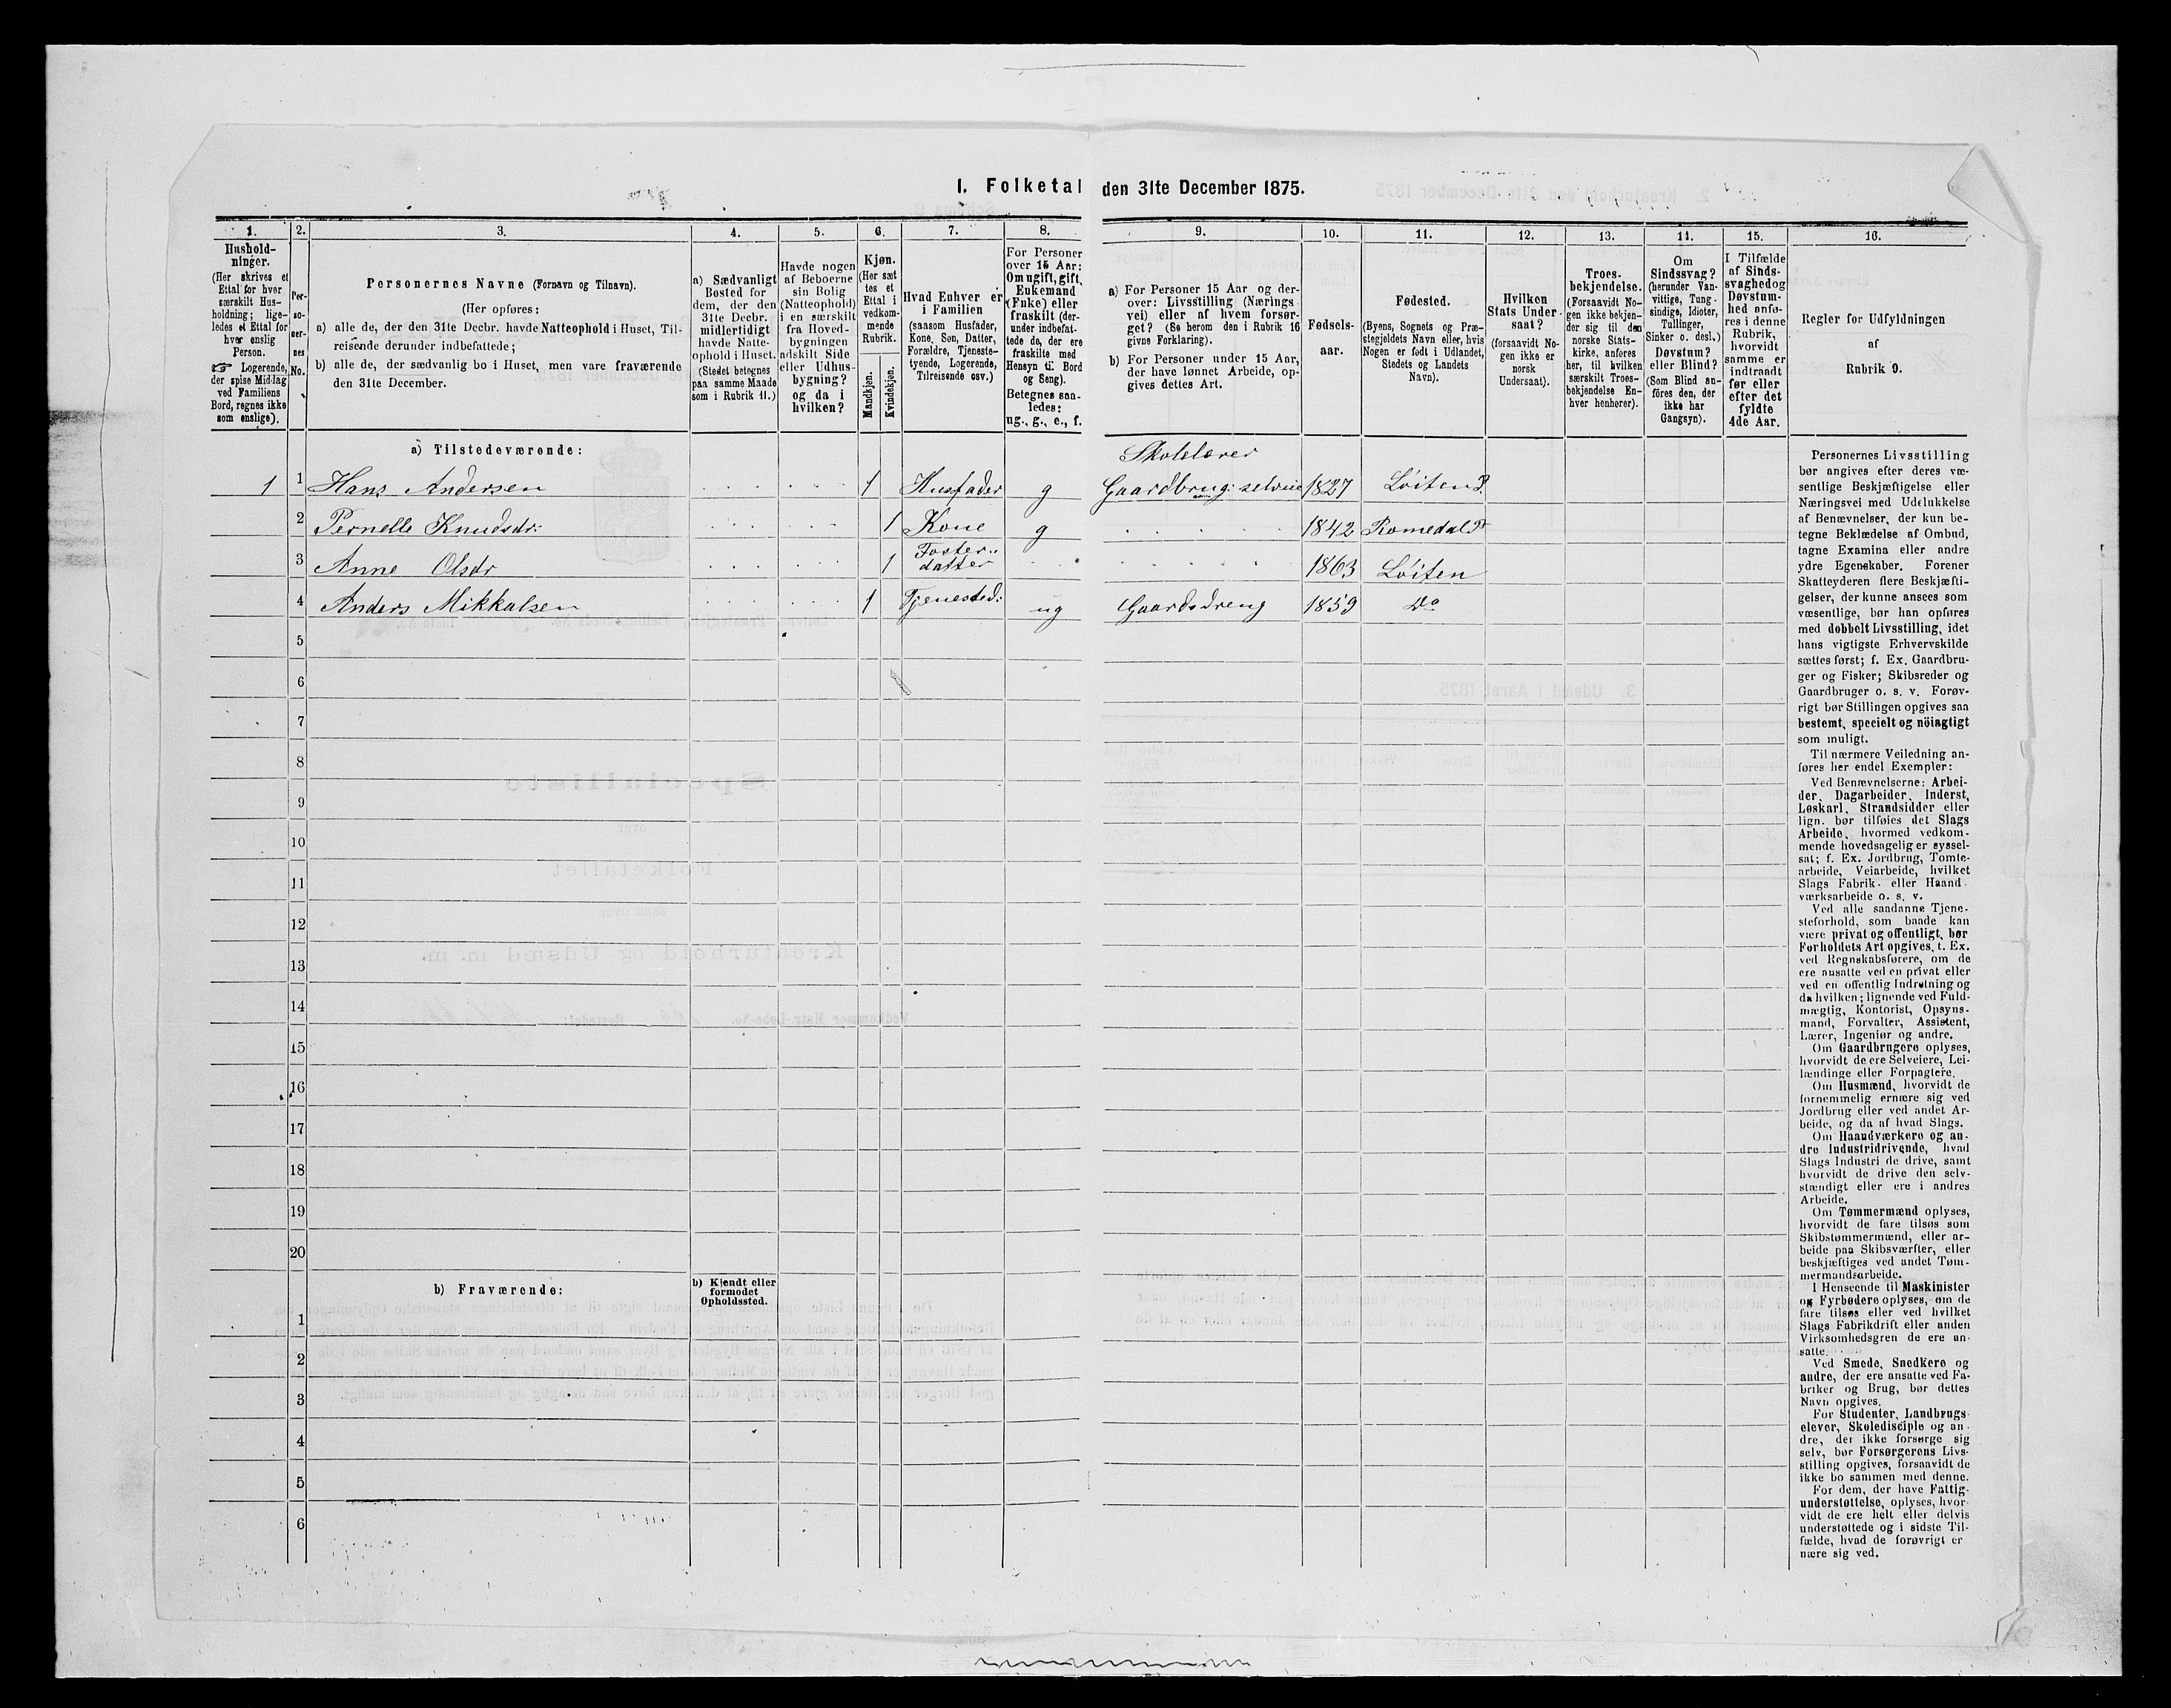 I. Folketal den 31te December 1875.
1.
Hushold-
ninger.
(Her skrives et
Ettal for hver
særskilt Hus-
holdning; lige-
ledes et Ettal for
hver enslig
Person.
☞ Logerende,
der spise Middag
ved Familiens
Bord, regnes ikke
som enslige).
2.
Per-
so-
ner-
nes
No.
3.
Personernes Navne (Fornavn og Tilnavn).
(Her opføres:
a) alle de, der den 31te Decbr. havde Natteophold i Huset, Til-
reisende derunder indbefattede;
b) alle de, der sædvanlig bo i Huset, men vare fraværende
den 31te December.
4.
a) Sædvanligt
Bosted for
dem, der den
31te Decbr.
midlertidigt
havde Natte-
ophold i Huset.
(Stedet betegnes
paa samme Maade
som i Rubrik 11.)
5.
Havde nogen
af Beboerne
sin Bolig
(Natteophold)
i en særskilt
fra Hoved-
bygningen
adskilt Side
eller Udhus-
bygning?
og da i
hvilken?
6.
Kjøn.
(Her sæt
tes et
Ettal i
vedkom-
mende
Rubrik.
Mandkjøn.
Kvindekjøn.
7.
Hvad Enhver er
i Familien
(saasom Husfader,
Kone, Søn, Datter,
Forældre, Tjeneste-
tyende, Logerende,
Tilreisende osv.)
8.
For Personer
over 15 Aar:
Om ugift, gift,
Enkemand
(Enke) eller
fraskilt (der-
under indbefat-
tede de, der ere
fraskilte med
Hensyn til Bord
og Seng).
Betegnes saa-
ledes:
ug., g., e., f.
9.
a) For Personer 15 Aar og der-
over: Livsstilling (Nærings
vei) eller af hvem forsør-
get? (Se herom den i Rubrik 16
givne Forklaring).
b) For Personer under 15 Aar,
der have lønnet Arbeide, op-
gives dettes Art.
10.
Fødsels-
aar.
11.
Fødested.
(Byens, Sognets og Præ-
stegjeldets Navn eller, hvis
Nogen er født i Udlandet,
Stedets og Landets
Navn).
12.
Hvilken
Stats Under
saat?
(forsaavidt No-
gen ikke er
norsk
Undersaat).
13.
Troes-
bekjendelse.
(Forsaavidt No-
gen ikke bekjen-
der sig til den
norske Stats-
kirke, anføres
her, til hvilken
særskilt Troes-
bekjendelse En-
hver henhører).
14.
Om
Sindssvag?
(herunder Van-
vittige, Tung-
sindige, Idioter,
Tullinger,
Sinker o. desl.)
Døvstum?
eller Blind?
(Som Blind an-
föres den, der
ikke har
Gangsyn).
15.
I Tilfælde
af Sinds-
svaghed og
Døvstum-
hed anfø-
res i denne
Rubrik,
hvorvidt
samme er
indtraadt
før eller
efter det
fyldte
4de Aar.
16.
Regler for Udfyldningen
af
Rubrik 9.
a) Tilstedeværende:
Skolelærer
1 1 Hans Andersen 1 Husfader g Gaardbrug: selveie 1827 Löiten P.
2 Pernelle Knudsdr: 1 Kone g 1842 Romedal P
3 Anne Olsdr 1 Foster-datter 1863 Löiten
4 Anders Mikkalsen 1 Tjenested: ug Gaardsdreng 1859 Do
5
6
7
8
9
10
11
12
13
14
15
16
17
18
19
20
b) Fraværende:
b) Kjendt eller
formodet
Opholdssted.
1
2
3
4
5
6
Personernes Livsstilling
bør angives efter deres væ-
sentlige Beskjæftigelse eller
Næringsvei med Udelukkelse
af Benævnelser, der kun be-
tegne Beklædelse af Ombud,
tagne Examina eller andre
ydre Egenskaber. Forener
Skatteyderen flere Beskjæfti-
gelser, der kunne ansees som
væsentlige, bør han opføres
med dobbelt Livsstilling, idet
hans vigtigste Erhvervskilde
sættes først; f. Ex. Gaardbru-
ger og Fisker; Skibsreder og
Gaardbruger o. s. v. Forøv-
rigt bør Stillingen opgives saa
bestemt, specielt og nöiagtigt
som muligt.
Til nærmere Veiledning an-
føres her endel Exempler:
Ved Benævnelserne: Arbei-
der, Dagarbeider, Inderst,
Løskarl, Strandsidder eller
lign. bør tilføies det Slags
Arbeide, hvormed vedkom-
mende hovedsagelig er syssel-
sat; f. Ex. Jordbrug, Tomte-
arbeide, Veiarbeide, hvilket
Slags Fabrik- eller Haand-
værksarbeide o. s. v.
Ved alle saadanne Tjene-
steforhold, som baade kan
være privat og offentligt, bør
Forholdets Art opgives, f. Ex.
ved Regnskabsførere, om de
ere ansatte ved en privat eller
ved en offentlig Indretning og
da hvilken; lignende ved Fuld-
mægtig, Kontorist, Opsyns-
mand, Forvalter, Assistent,
Lærer, Ingeniør og andre.
Om Gaardbrugere oplyses,
hvorvidt de ere Selveiere, Lei-
lændinge eller Forpagtere.
Om Husmænd, hvorvidt de
fornemmelig ernære sig ved
Jordbrug eller ved andet Ar-
beide, og da af hvad Slags.
Om Haandværkere og an-
dre Industridrivende, hvad
Slags Industri de drive, samt
hvorvidt de drive den selv-
stændigt eller ere i andres
Arbeide.
Om Tømmermænd oplyses,
hvorvidt de fare tilsøs som
Skibstømmermænd, eller ar-
beide paa Skibsværfter, eller
beskjæftiges ved andet Tøm-
mermandsarbeide.
I Henseende til Maskinister
og Fyrbødere oplyses, om de
fare tilsøs eller ved hvilket
Slags Fabrikdrift eller anden
Virksomhedsgren de ere an-
satte.
Ved Smede, Snedkere og
andre, der ere ansatte ved Fa-
briker og Brug, bør dettes
Navn opgives.
For Studenter, Landbrugs-
elever, Skoledisciple og an-
dre, der ikke forsørge sig
selv, bør Forsørgerens Livs-
stilling opgives, forsaavidt de
ikke bo sammen med denne.
For dem, der have Fattig-
understøttelse, oplyses, hvor-
vidt de ere helt eller delvis
understøttede og i sidste Til-
fælde, hvad de forøvrigt er
nære sig ved.